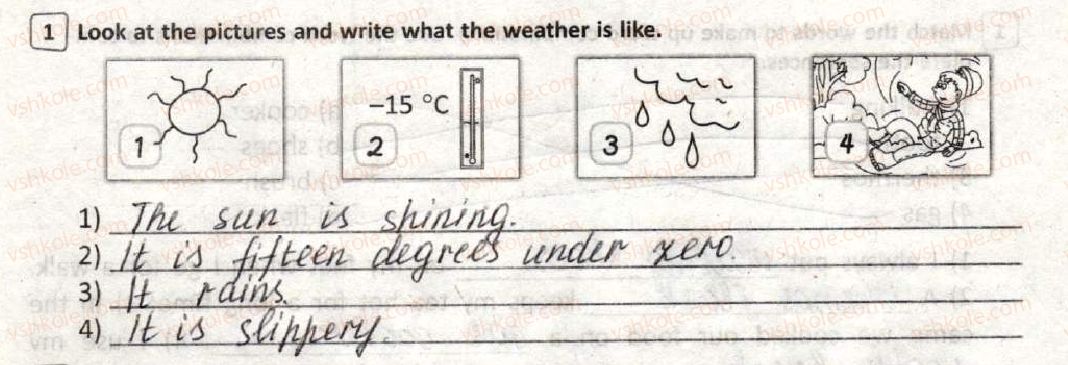 1 Look at the pictures and write what the weather is like.
1 2 -15 °C 3 4
1) The sun is shining.
2) It is fifteen degrees under zero.
3) It rains.
4) It is slippery
vshkole.com